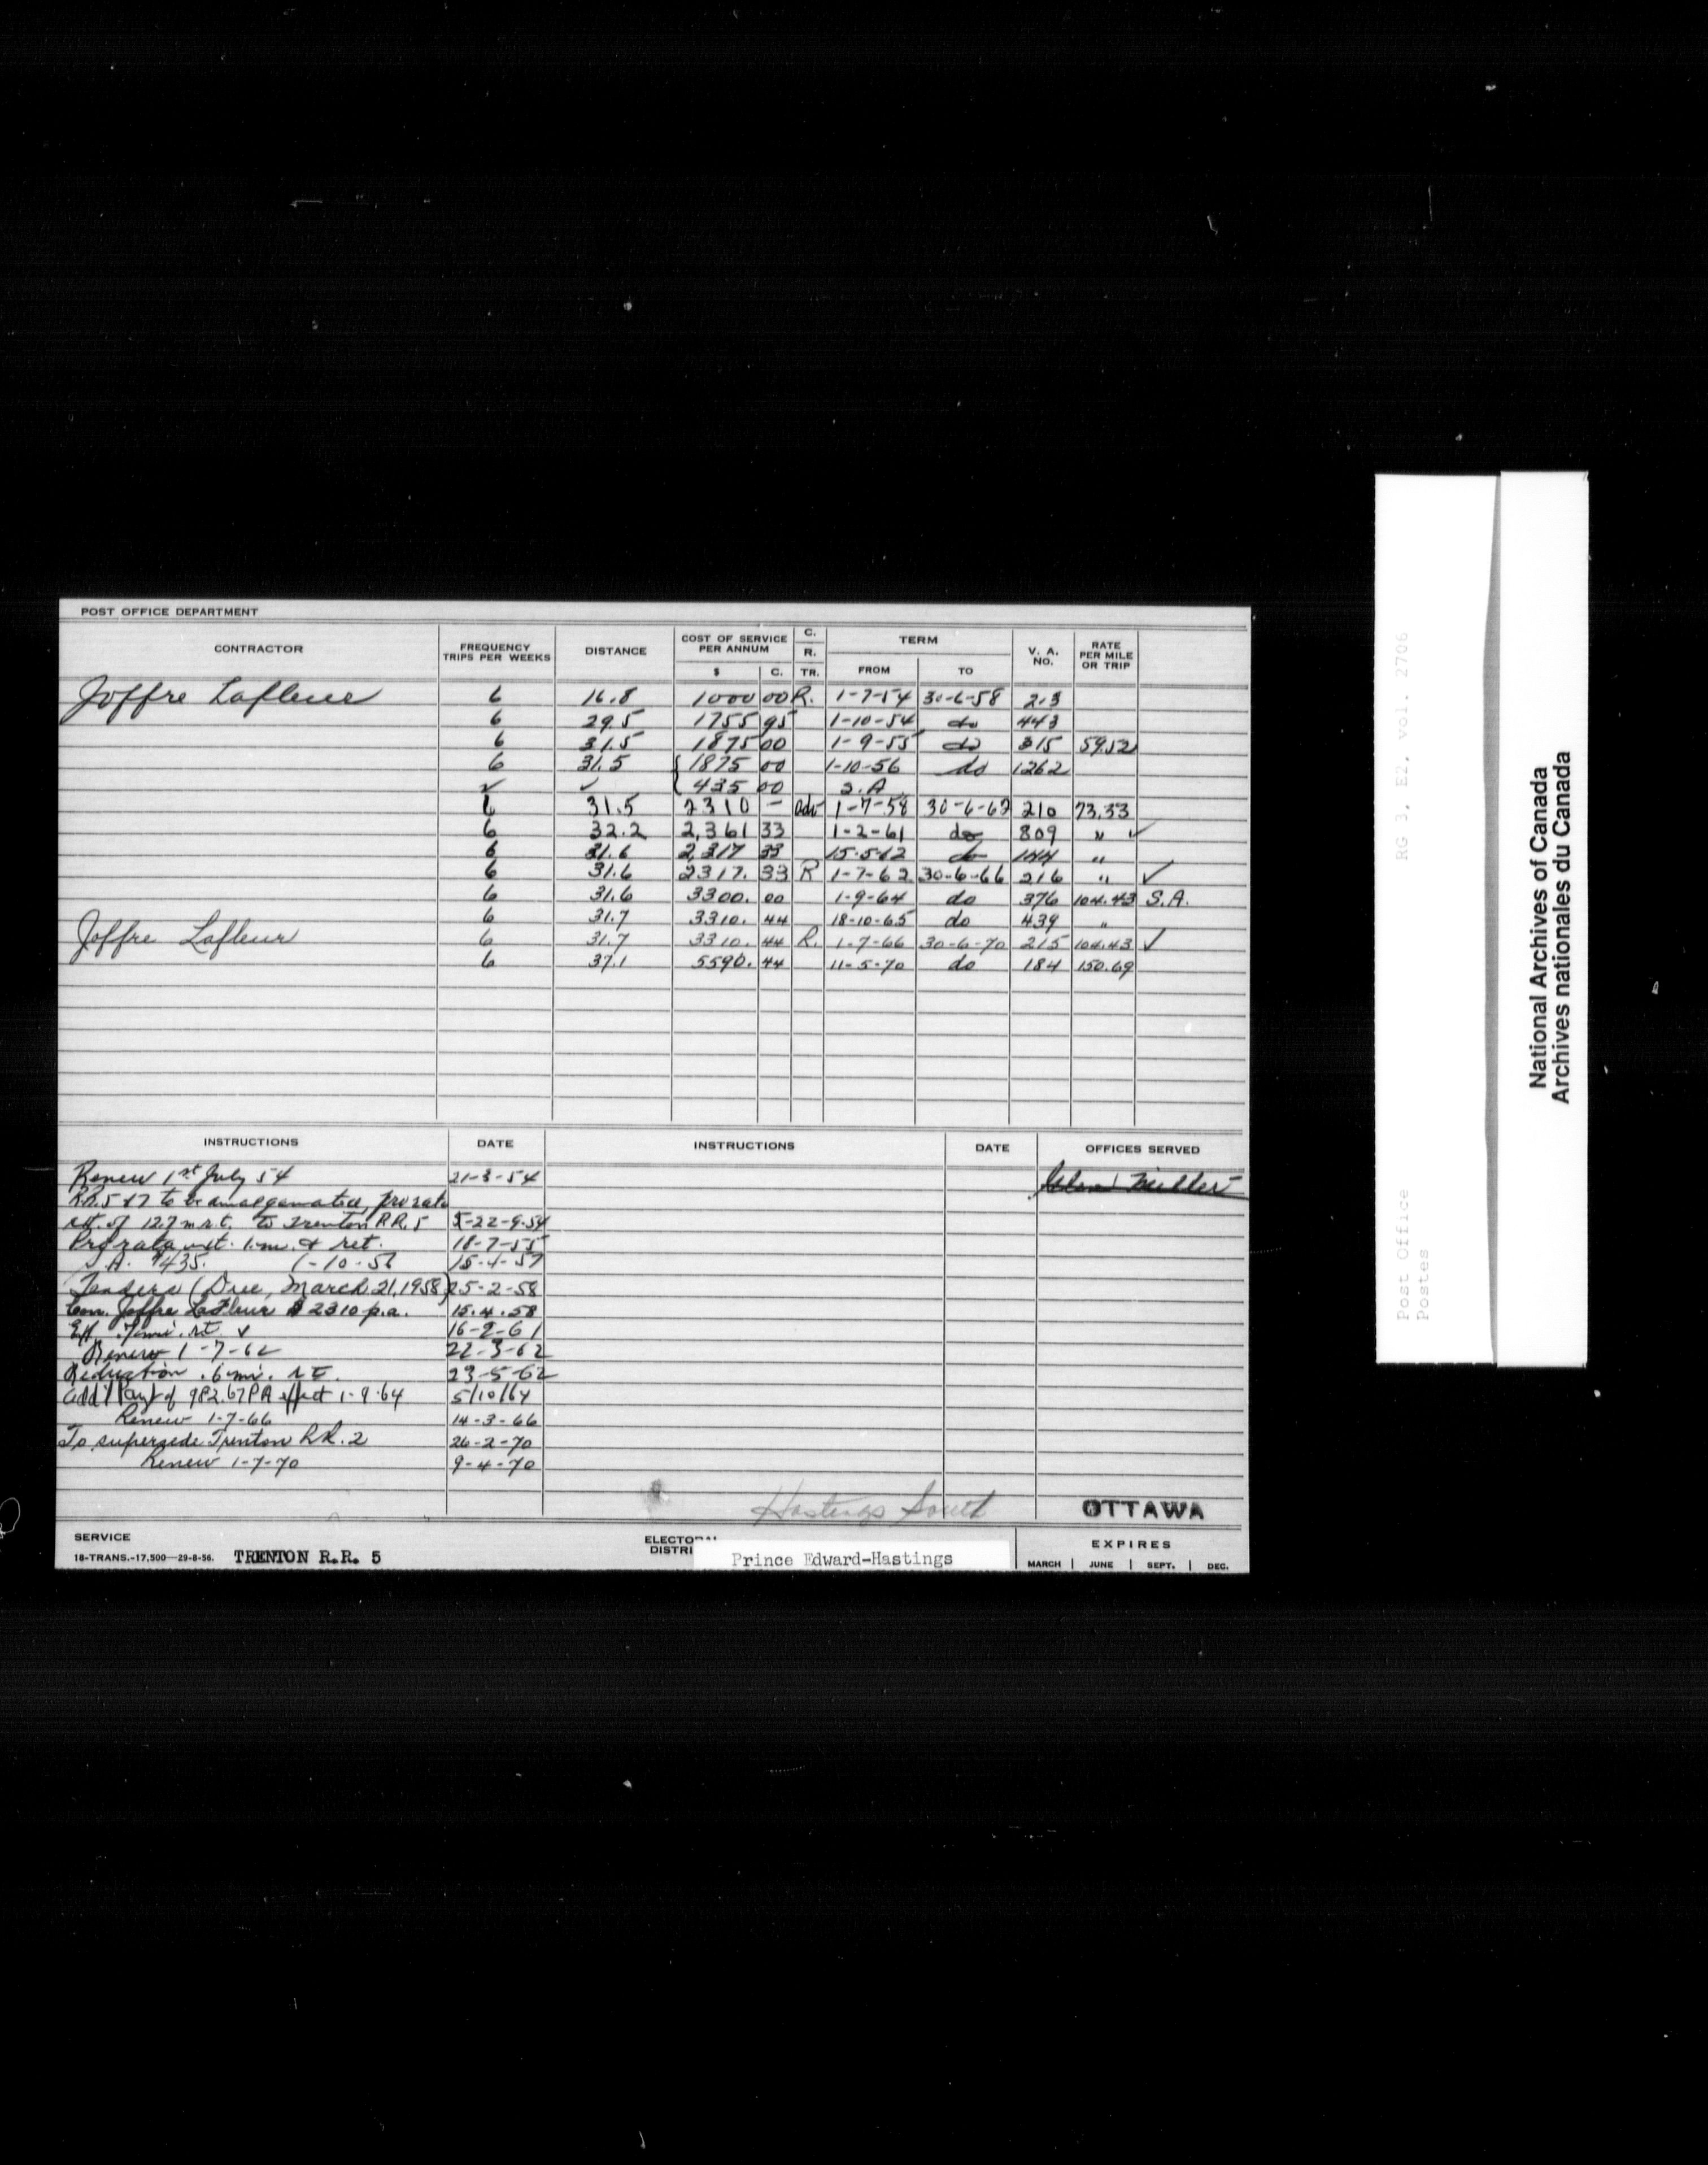 POST OFFICE DEPARTMENT
CONTRACTOR FREQUENCY TRIPS PER WEEKS DISTANCE COST OF SERVICE PER ANNUM $ C. C. R. TR. TERM FROM TO V. A. NO. RATE PER MILE OR TRIP
Joffre Lafleur 6 16.8 1000 00 R. 1-7-54 30-6-58 213
6 29.5 1755 95 1-10-54 do 443
6 31.5 1875 00 1-9-55 do 315 59.52
6 31.5 { 1875 00 1-10-56 do 1262
✓ ✓ { 435 00 S.A.
6 31.5 2310 – adv 1-7-58 30-6-62 210 73.33
6 32.2 2,361 33 1-2-61 do 809 " ✓
6 31.6 2,317 33 15-5-62 do 144 "
6 31.6 2317. 33 R 1-7-62 30-6-66 216 " ✓
6 31.6 3300. 00 1-9-64 do 376 104.43 S.A.
6 31.7 3310. 44 18-10-65 do 439 "
Joffre Lafleur 6 31.7 3310. 44 R. 1-7-66 30-6-70 215 104.43 ✓
6 37.1 5590. 44 11-5-70 do 184 150.69
INSTRUCTIONS DATE INSTRUCTIONS DATE OFFICES SERVED
Renew 1st July 54 21-3-54
R.R. 5 & 7 to be amalgamated, pro rata
ext. of 12.7 m r.t. to Trenton R.R. 5 22-9-54
Pro rata ext. 1 m. & ret. 18-7-55
S.A. $435. 1-10-56 15-4-57
Tenders (Due, March 21, 1958) 25-2-58
Con. Joffre Lafleur $2310 p.a. 15.4.58
Ext .7 mi. rt. ✓ 16-2-61
Renew 1-7-62 22-3-62
Reduction .6 mi. r.t. 23-5-62
Add'l Payt of 982.67 PA effect 1-9-64 5/10/64
Renew 1-7-66 14-3-66
To supersede Trenton R.R. 2 26-2-70
Renew 1-7-70 9-4-70
Hastings South
OTTAWA
SERVICE
18-TRANS.-17,500—29-8-56. TRENTON R.R. 5
ELECTORAL DISTRI
Prince Edward-Hastings
EXPIRES
MARCH | JUNE | SEPT. | DEC.
RG 3, E2, vol. 2706
Post Office
Postes
National Archives of Canada
Archives nationales du Canada